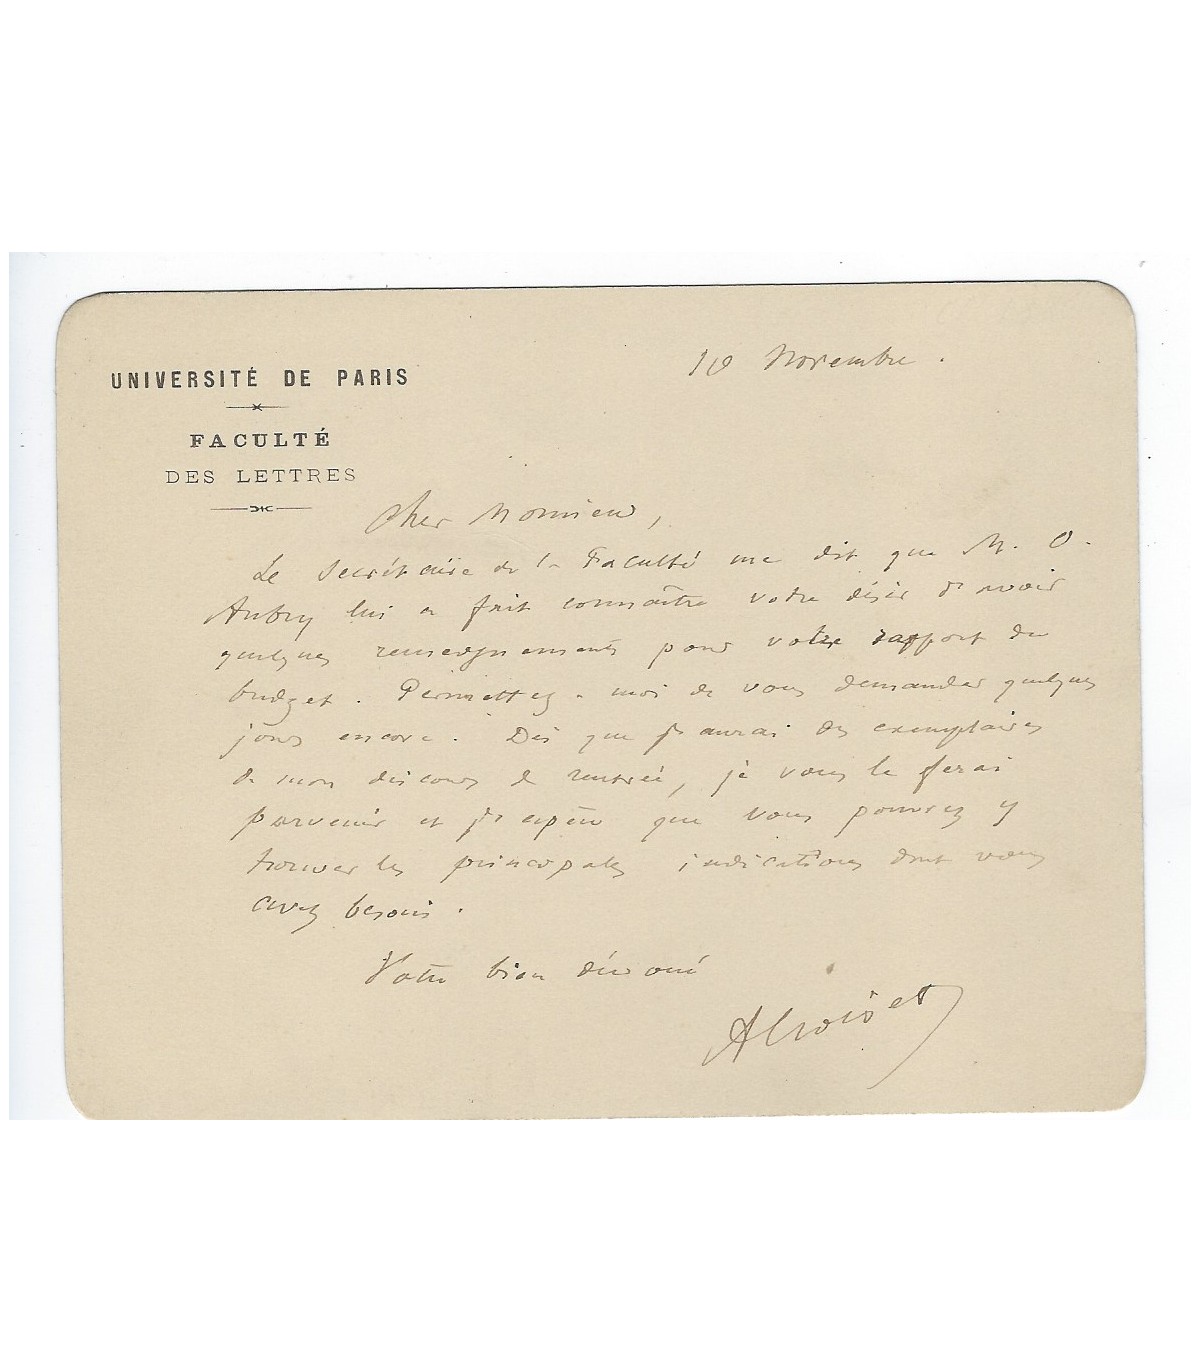 UNIVERSITÉ DE PARIS
FACULTÉ
DES LETTRES
10 Novembre.
Cher Monsieur,
Le Secrétaire de la Faculté me dit que M. O.
Aubry lui a fait connaître votre désir d'avoir
quelques renseignements pour votre rapport du
budget. Permettez-moi de vous demander quelques
jours encore. Dès que j'aurai des exemplaires
de mon discours de rentrée, je vous le ferai
parvenir et j'espère que vous pourrez y
trouver les principales indications dont vous
avez besoin.
Votre bien dévoué
ACroiset